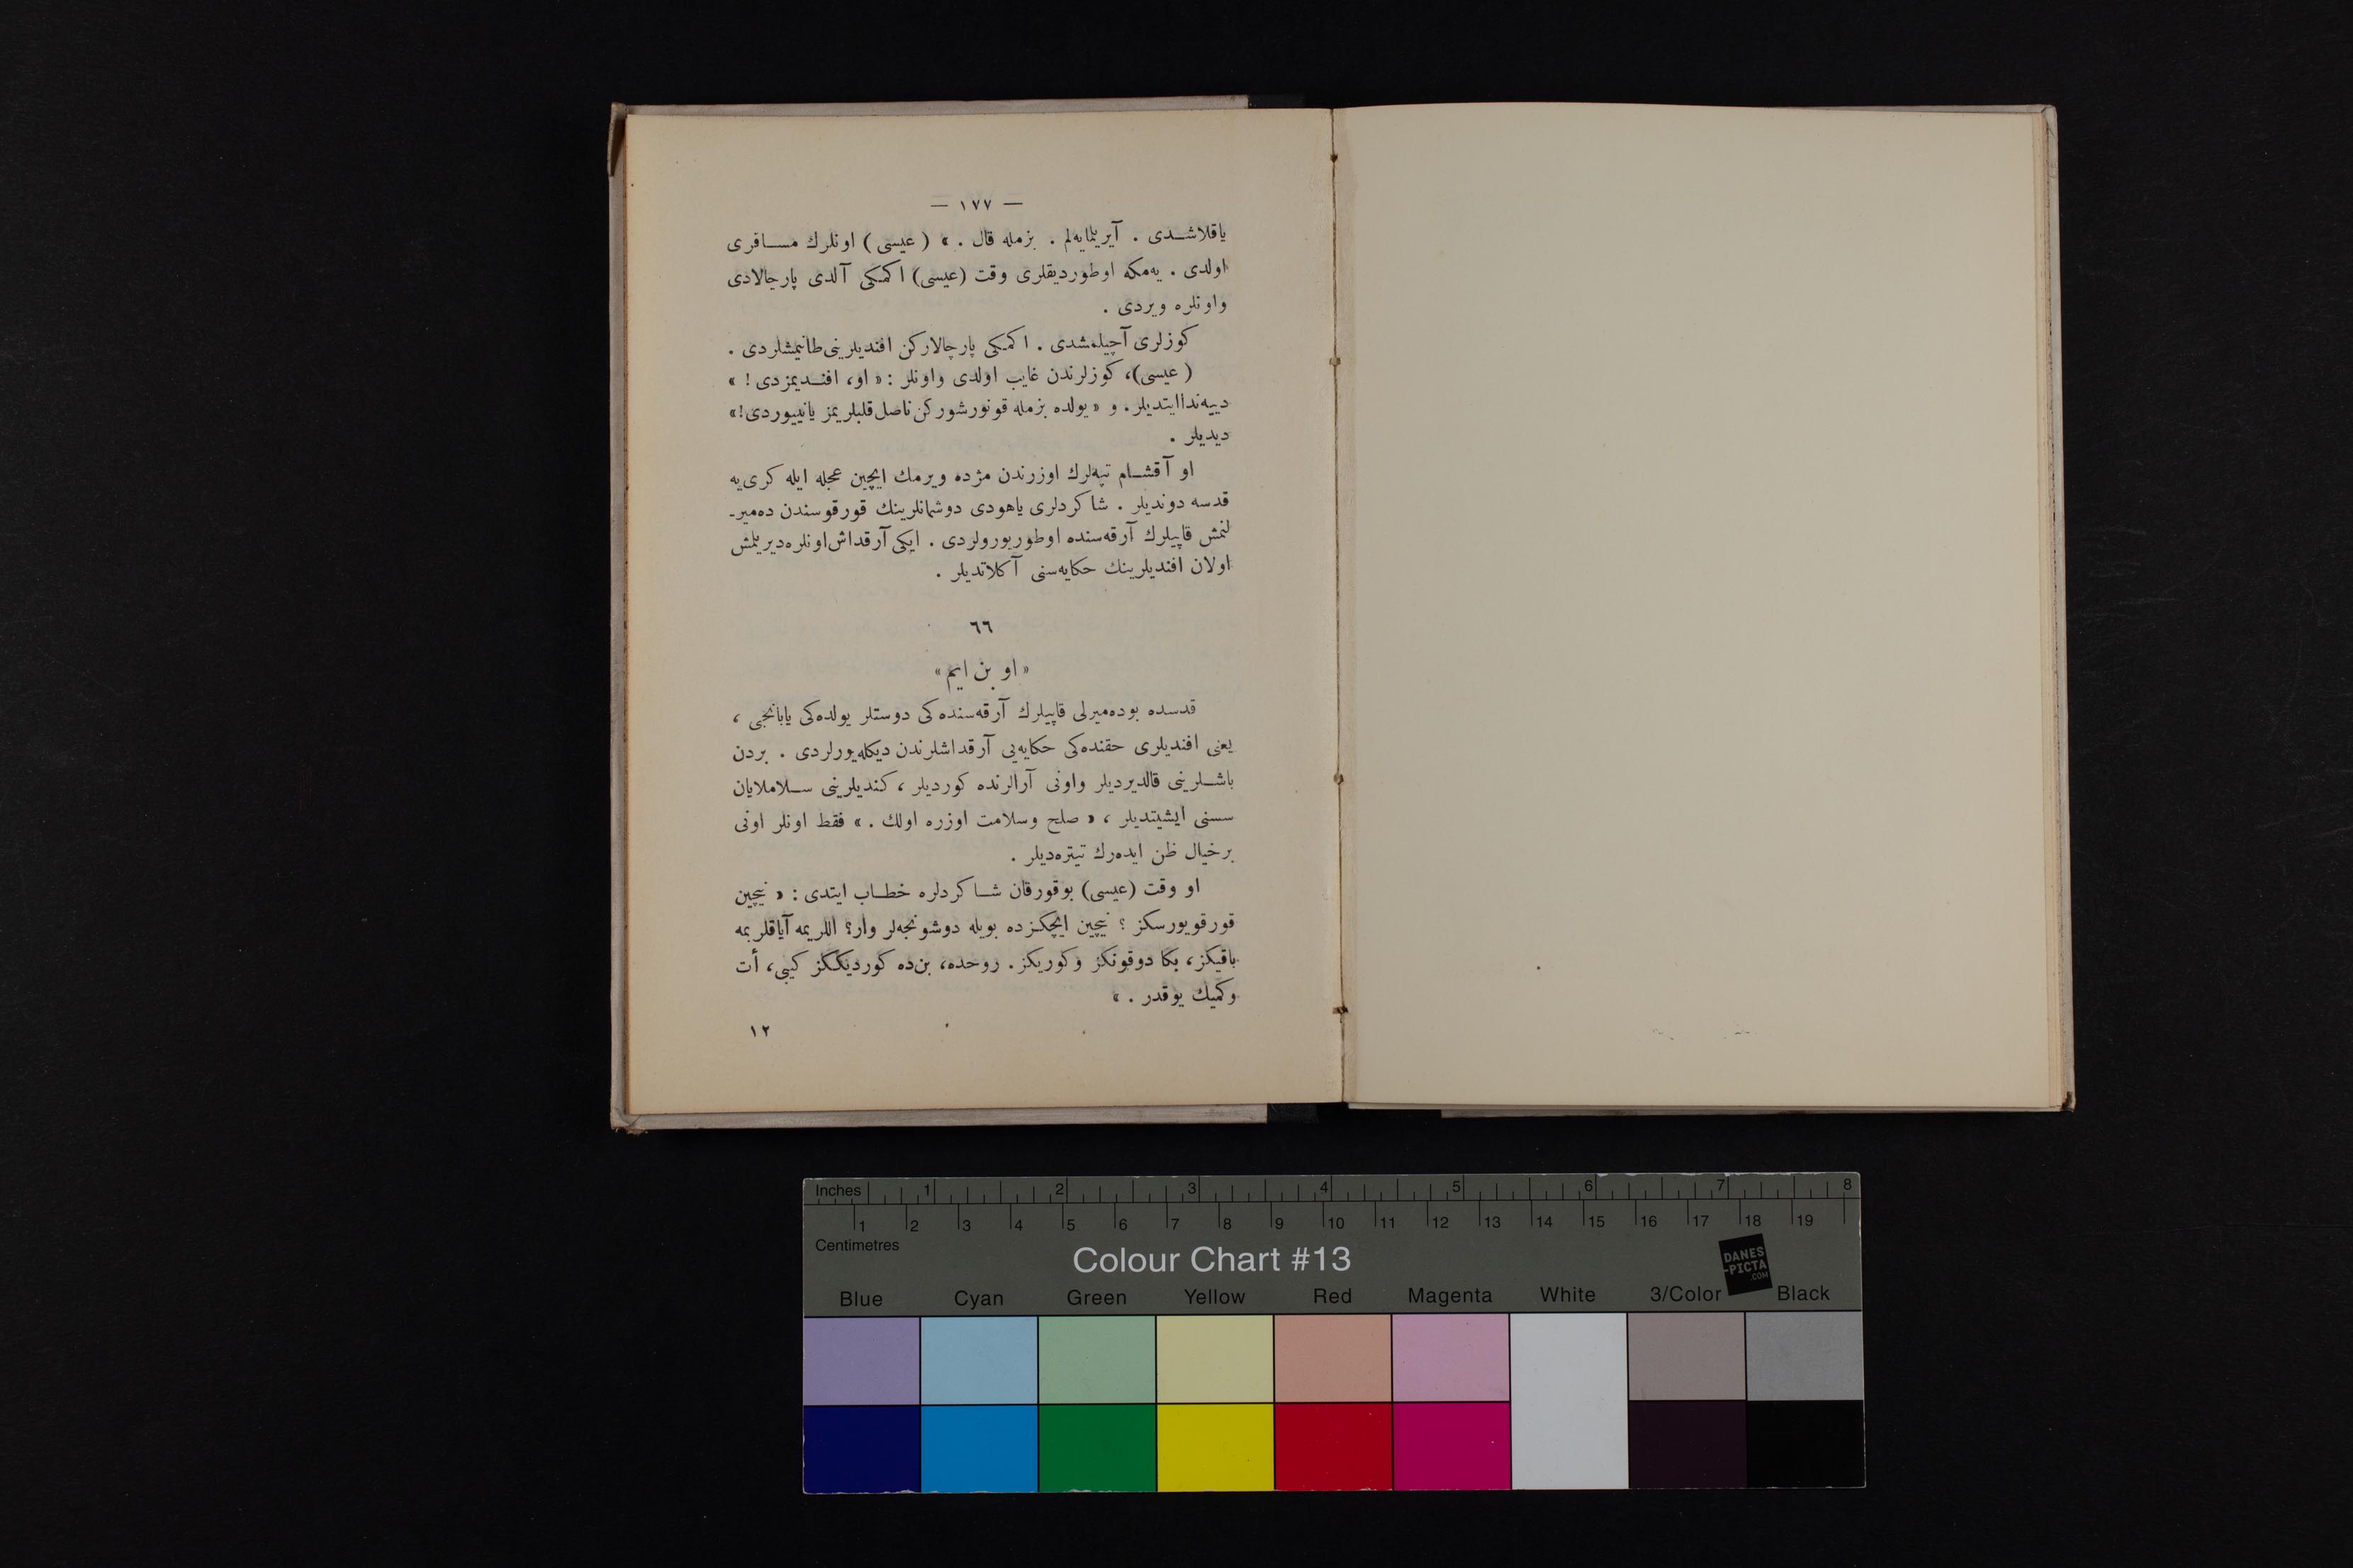 — ١٧٧ —
ياقلاشـدى . آيريلمايه‌لم . بزمله قال . » ( عيسى ) اونلرك مسـافرى
اولدى . يه‌مكه اوطورديقلرى وقت (عيسى) اكمكى آلدى پارچالادى
واونلره ويردى .
كوزلرى آچيلمشدى . اكمكى پارچالاركن افنديلرينى طانيمشلردى .
( عيسى)، كوزلرندن غايب اولدى واونلر : « او، افنـديمزدى ! »
دييه‌ندا ايتديلر. و « يولده بزمله قونورشوركن ناصل قلبلريمز يانييوردى!»
ديديلر .
او آقشـام تپه‌لرك اوزرندن مژده ويرمك ايچين عجله ايله كرى‌يه
قدسه دونديلر . شاكردلرى ياهودى دوشمانلرينك قورقوسندن ده‌مير-
لنمش قاپيلرك آرقه‌سنده اوطوريورولردى . ايكى آرقداش اونلره ديريلمش
اولان افنديلرينك حكايه‌سنى آكلاتديلر .
٦٦
« او بن ايم »
قدسده بوده‌ميرلى قاپيلرك آرقه‌سنده‌كى دوستلر يولده‌كى يابانجى ،
يعنى افنديلرى حقنده‌كى حكايه‌يى آرقداشلرندن ديكله‌يورلردى . بردن
باشـلرينى قالديرديلر واونى آرالرنده كورديلر ، كنديلرينى سـلاملايان
سسنى ايشيتديلر ، « صلح وسلامت اوزره اولك . » فقط اونلر اونى
برخيال ظن ايده‌رك تيتره‌ديلر .
او وقت (عيسى) بوقورقان شـاكردلره خطـاب ايتدى : « نيچين
قورقويورسكز ؟ نيچين ايچكـزده بويله دوشونجه‌لر وار؟ اللريمه آياقلريمه
باقيكز، بكا دوقونكز وكوريكز. روحده، بن‌ده كورديككز كيبى، أت
وكميك يوقدر . »
١٢
Inches 1 2 3 4 5 6 7 8
1 2 3 4 5 6 7 8 9 10 11 12 13 14 15 16 17 18 19
Centimetres
Colour Chart #13
DANES
-PICTA
.COM
Blue Cyan Green Yellow Red Magenta White 3/Color Black